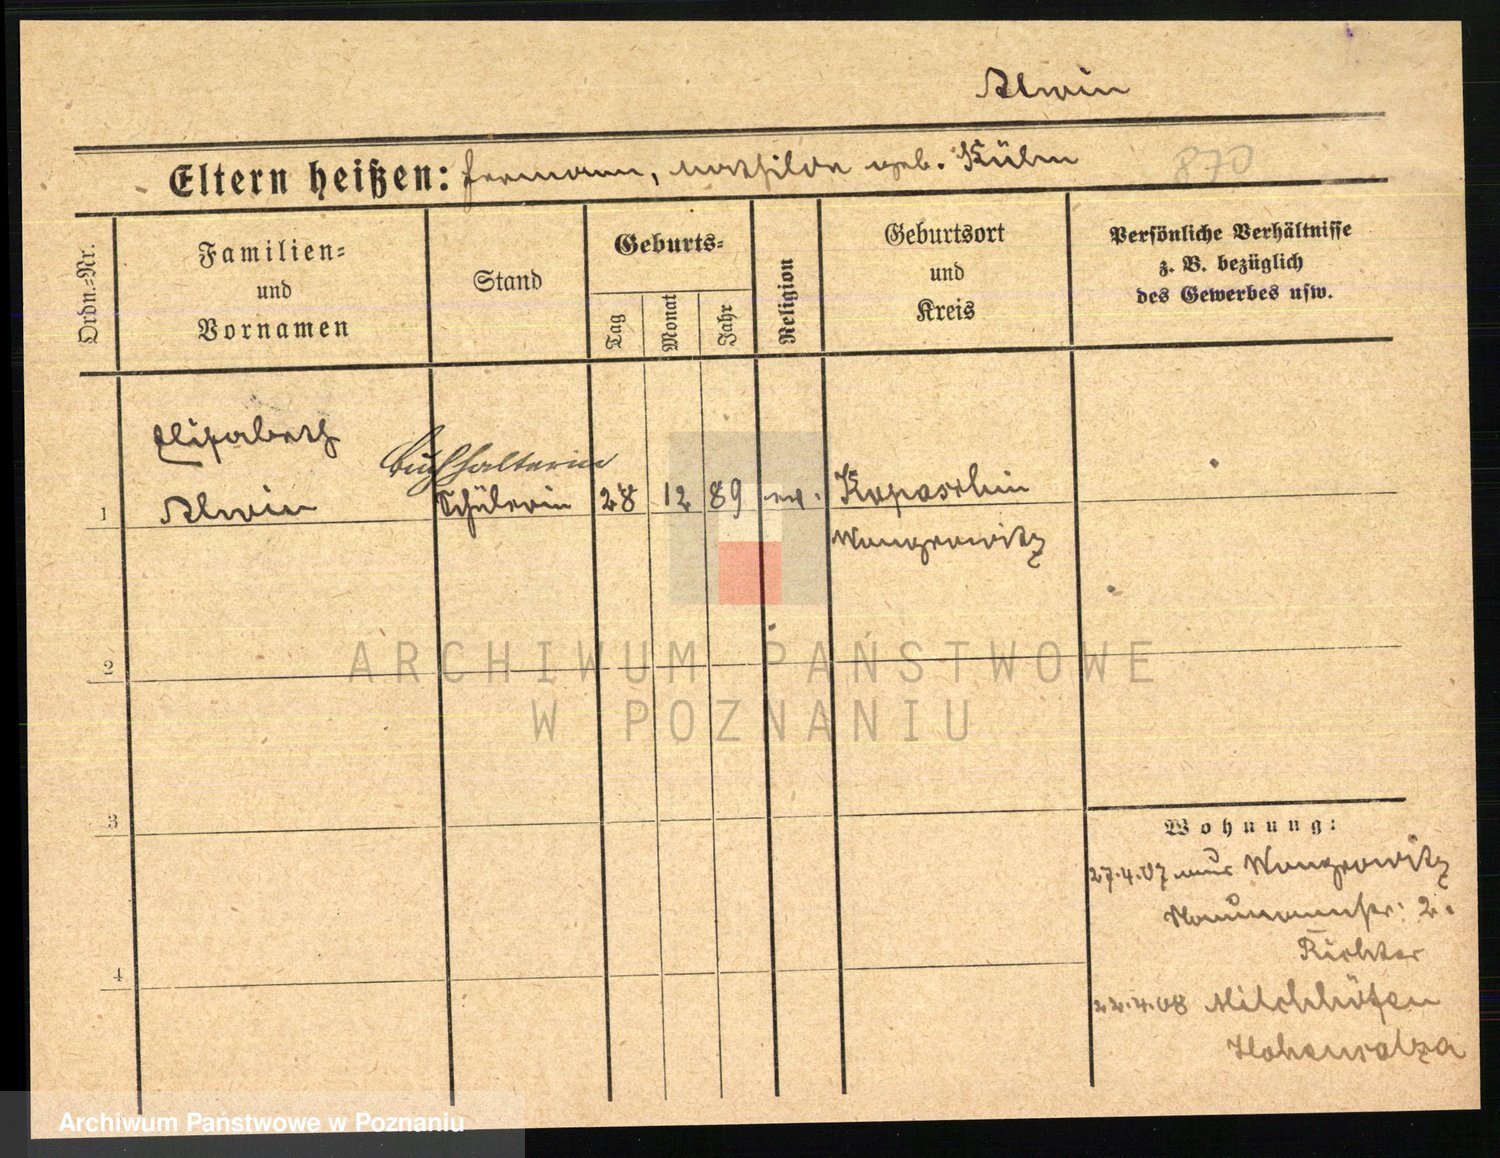 Alwin
Eltern heißen: Hermann, Mathilde geb. Kühn
870
Ordn.-Nr.
Familien-
und
Vornamen
Stand
Geburts-
Tag
Monat
Jahr
Religion
Geburtsort
und
Kreis
Persönliche Verhältnisse
z. B. bezüglich
des Gewerbes usw.
Elisabeth
Buchhalterin
1 Alwin Schülerin 28 12 89 ev. Kopaschin
Wongrowitz
2
3
4
Wohnung:
27.4.07 aus Wongrowitz
Naumannstr. 2.
Richter
22.4.08 Milchhöfen
Hohensalza
ARCHIWUM PAŃSTWOWE
W POZNANIU
Archiwum Państwowe w Poznaniu